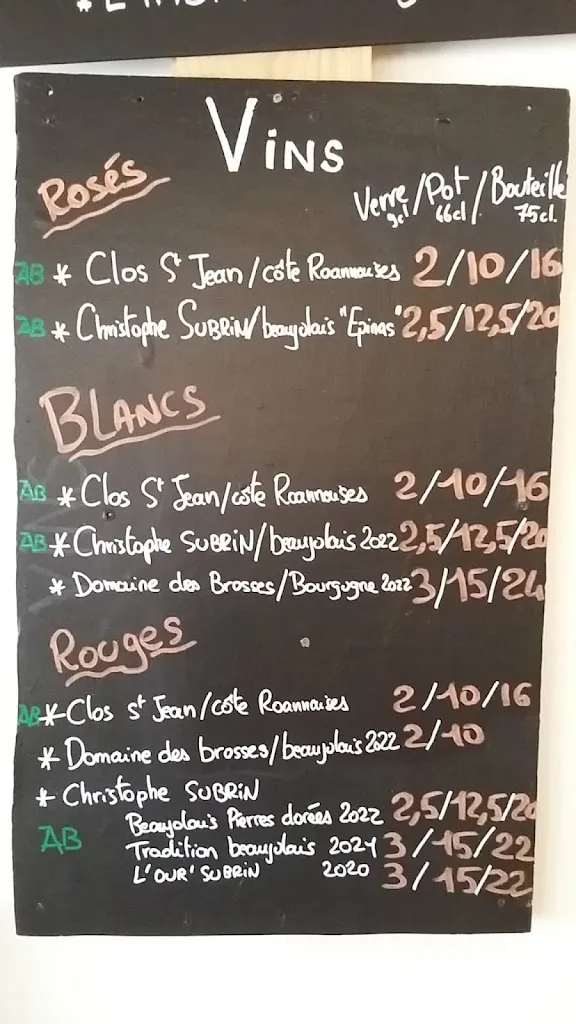 Vins
Rosés
Verre/Pot/Bouteille
9cl 46cl 75cl.
AB * Clos St Jean/côte Roannaises 2/10/16
AB * Christophe SUBRiN/beaujolais "Epinas" 2,5/12,5/20
BLANCS
AB * Clos St Jean/côte Roannaises 2/10/16
AB * Christophe SUBRiN/beaujolais 2022 2,5/12,5/20
* Domaine des Brosses/Bourgogne 2022 3/15/24
Rouges
AB * Clos St Jean/côte Roannaises 2/10/16
* Domaine des brosses/beaujolais 2022 2/10
* Christophe SUBRiN
AB Beaujolais Pierres dorées 2022 2,5/12,5/20
Tradition beaujolais 2021 3/15/22
L'OUR'SUBRiN 2020 3/15/22